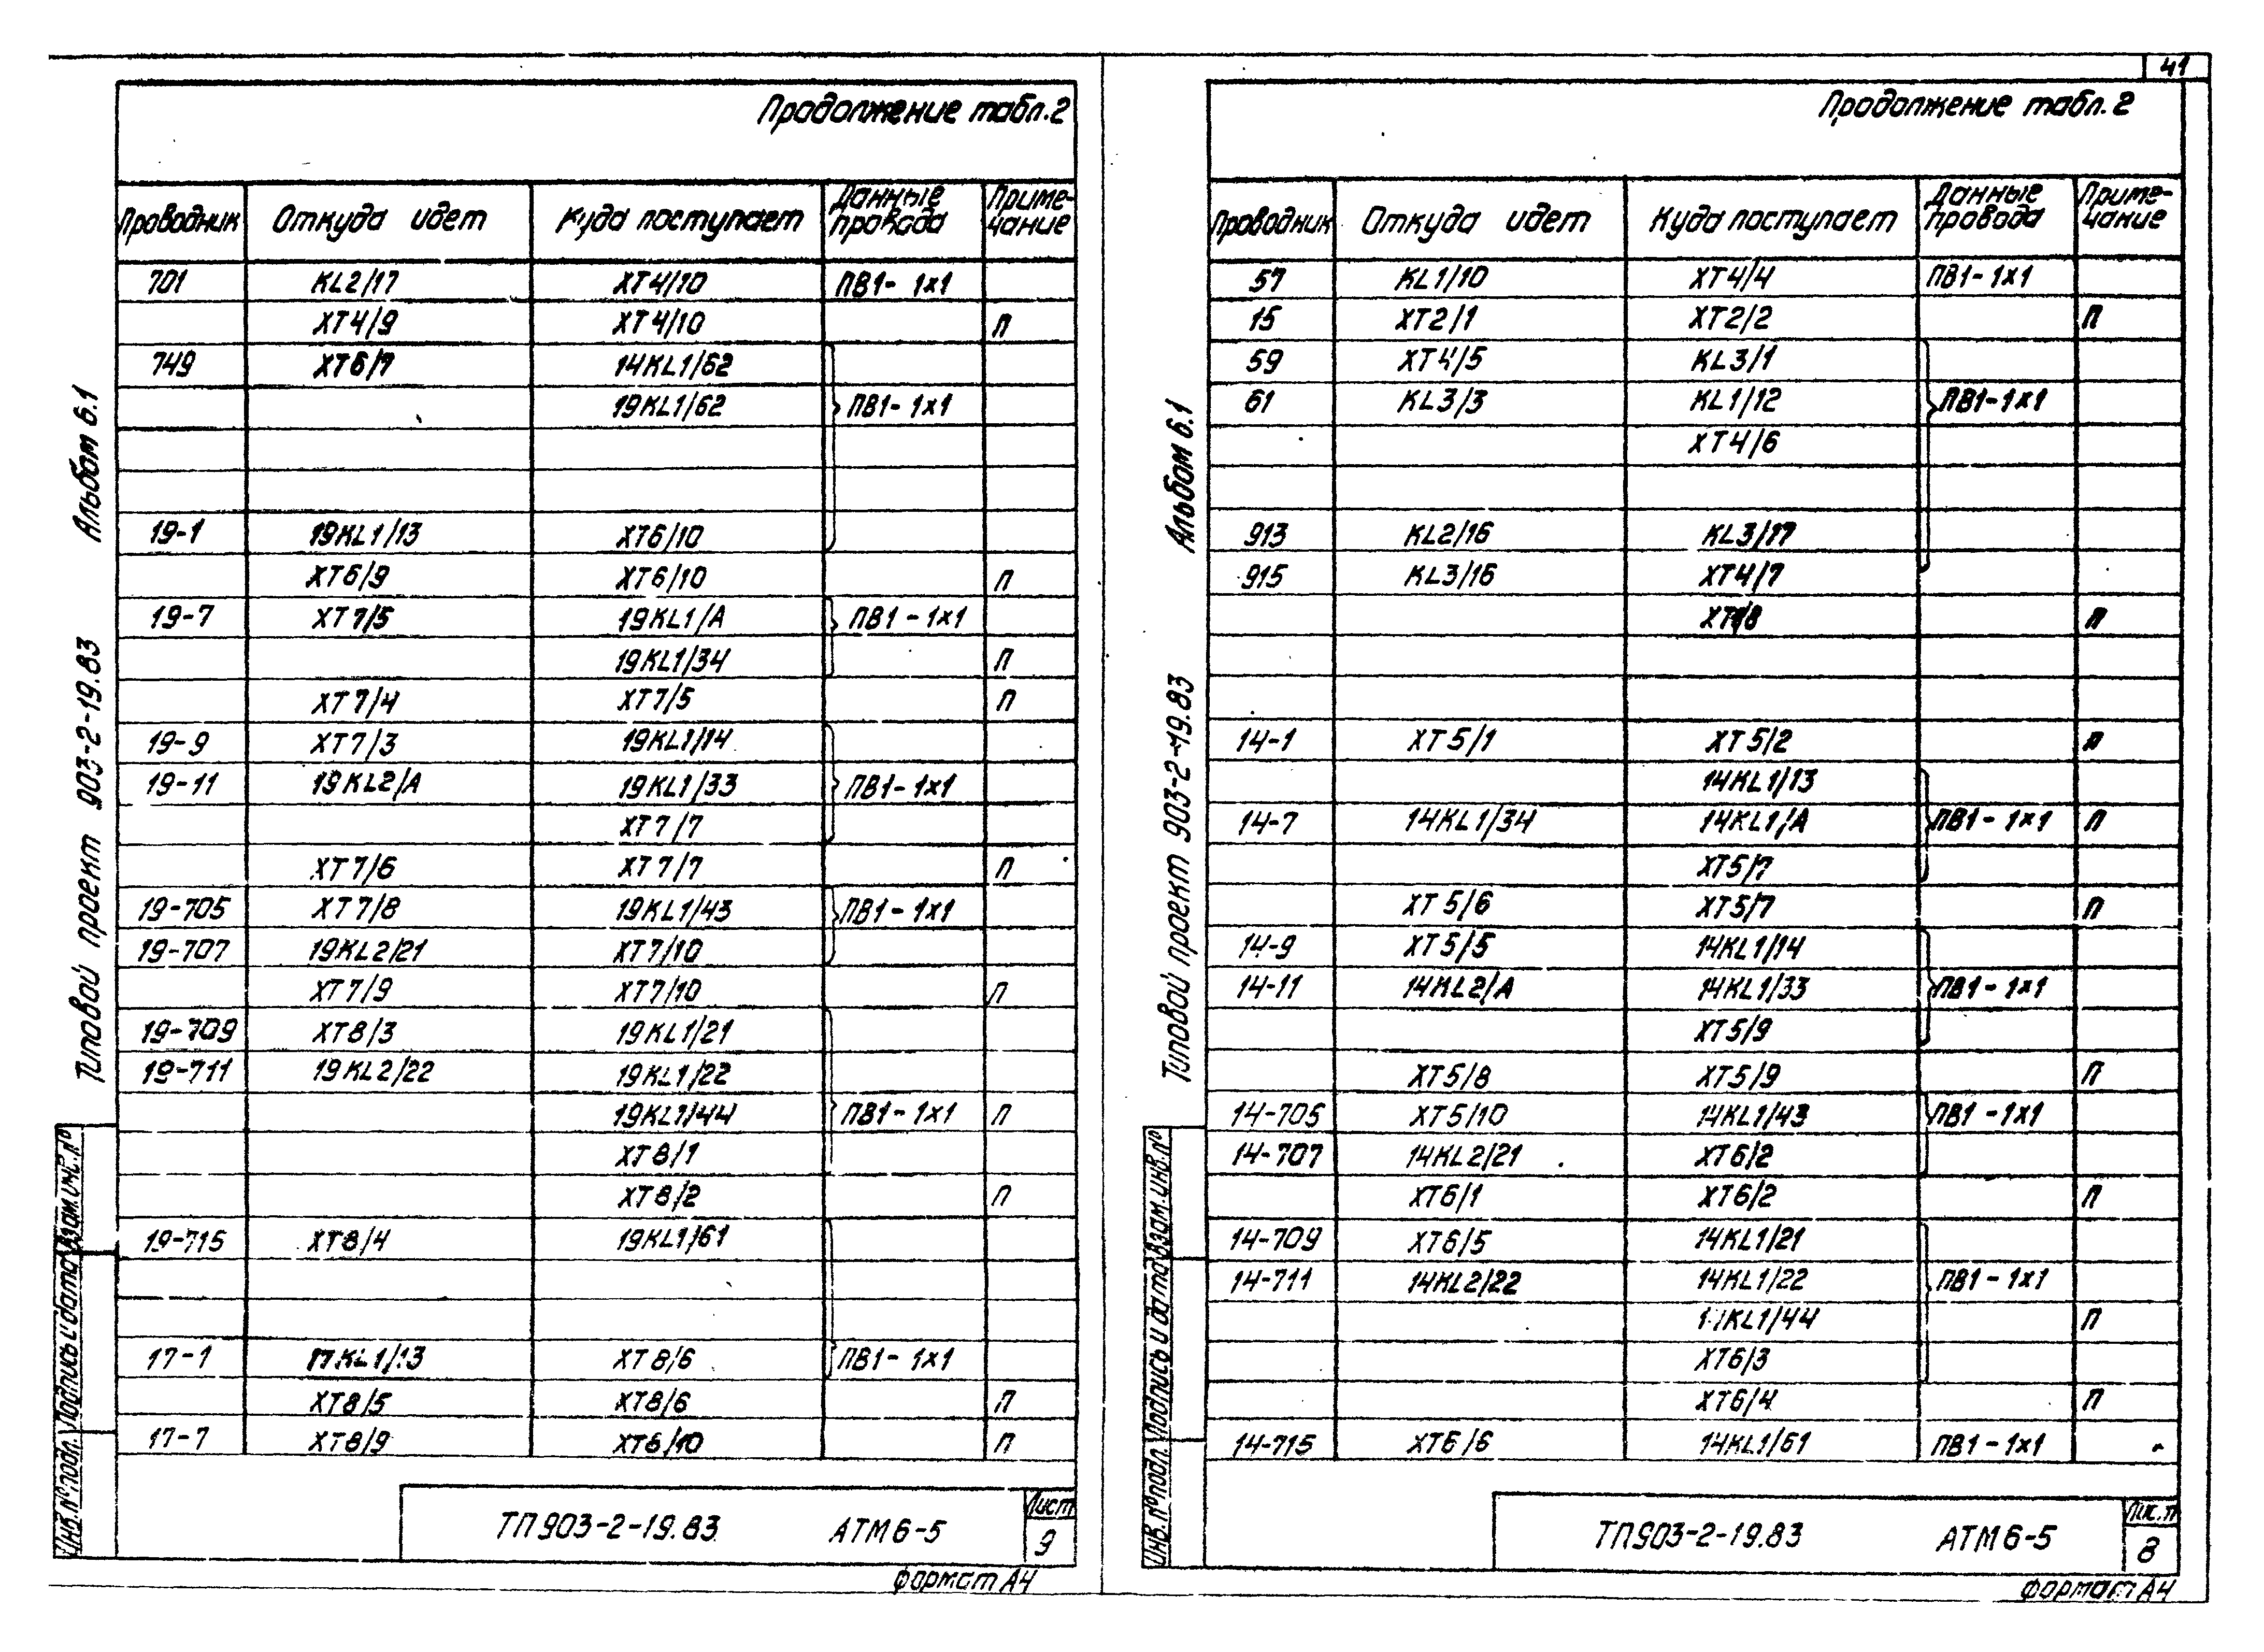 41
Продолжение табл.2
Проводник Откуда идет Куда поступает Данные провода Приме-чание
701 KL2/17 XT4/10 ПВ1- 1x1
XT4/9 XT4/10 П
749 XT6/7 14KL1/62
19KL1/62 ПВ1- 1x1
19-1 19KL1/13 XT6/10
XT6/9 XT6/10 П
19-7 XT7/5 19KL1/A ПВ1 - 1x1
19KL1/34 П
XT7/4 XT7/5 П
19-9 XT7/3 19KL1/14
19-11 19KL2/A 19KL1/33 ПВ1- 1x1
XT7/7
XT7/6 XT7/7 П
19-705 XT7/8 19KL1/43 ПВ1- 1x1
19-707 19KL2/21 XT7/10
XT7/9 XT7/10 П
19-709 XT8/3 19KL1/21
19-711 19KL2/22 19KL1/22
19KL1/44 ПВ1- 1x1 П
XT8/1
XT8/2 П
19-715 XT8/4 19KL1/61
17-1 17KL1/13 XT8/6 ПВ1- 1x1
XT8/5 XT8/6 П
17-7 XT8/9 XT6/10 П
Альбом 6.1
Типовой проект 903-2-19.83
Взам.инв.№
Подпись и дата
Инв.№подл.
ТП903-2-19.83 АТМ6-5 Лист 9
формат А4
Продолжение табл.2
Проводник Откуда идет Куда поступает Данные провода Приме-чание
57 KL1/10 XT4/4 ПВ1-1x1
15 XT2/1 XT2/2 П
59 XT4/5 KL3/1
61 KL3/3 KL1/12 ПВ1-1x1
XT4/6
913 KL2/16 KL3/17
915 KL3/16 XT4/7
П
14-1 XT5/1 XT5/2 П
14KL1/13
14-7 14KL1/34 14KL1/A ПВ1- 1x1 П
XT5/7
XT5/6 XT5/7 П
14-9 XT5/5 14KL1/14
14-11 14KL2/A 14KL1/33 ПВ1- 1x1
XT5/9
XT5/8 XT5/9 П
14-705 XT5/10 14KL1/43 ПВ1 -1x1
14-707 14KL2/21 XT6/2
XT6/1 XT6/2 П
14-709 XT6/5 14KL1/21
14-711 14KL2/22 14KL1/22 ПВ1- 1x1
П
XT6/3
XT6/4 П
14-715 XT6/6 14KL1/61 ПВ1-1x1
Альбом 6.1
Типовой проект 903-2-19.83
Взам.инв.№
Подпись и дата
Инв.№подл.
ТП903-2-19.83 АТМ6-5 Лист 8
формат А4